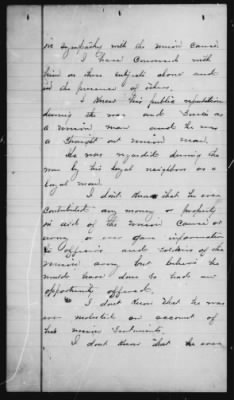 in sympathy with the union cause
I have conversed with
him on these subjects alone and
in the presence of others.
I knew his public reputation
during the war and it was as
a union man and he was
a thought out union man.
He was regarded during the
war by his loyal neighbors as a
loyal man
I don't know that he ever
contributed any money or property
in aid of the union cause or
army or ever gave information
to officers and soldiers of the
union army but believe he
would have done so had an
opportunity offered.
I don't know that he was
ever molested on account of
his union sentiments.
I don't know that he ever